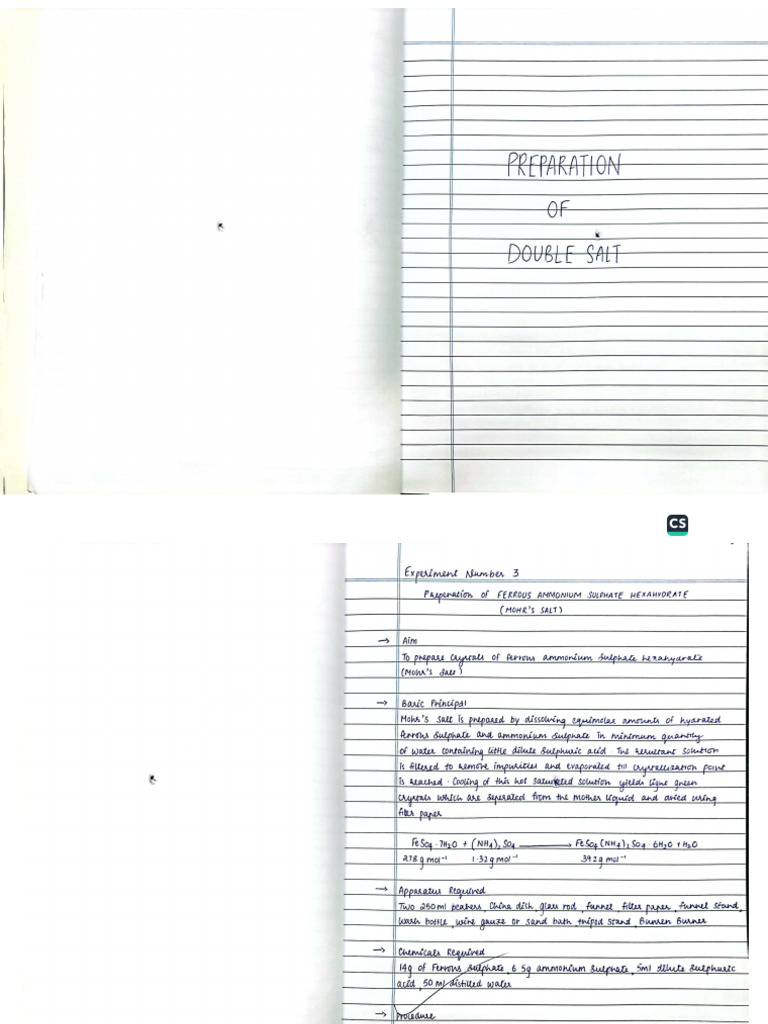 PREPARATION
OF
DOUBLE SALT
CS
Experiment Number 3
Preparation of FERROUS AMMONIUM SULPHATE HEXAHYDRATE
(MOHR'S SALT)
→ Aim
To prepare crystals of ferrous ammonium sulphate hexahydrate
(Mohr's Salt)
→ Basic Principal
Mohr's salt is prepared by dissolving equimolar amounts of hydrated
ferrous sulphate and ammonium sulphate in minimum quantity
of water containing little dilute sulphuric acid The resultant solution
is filtered to remove impurities and evaporated till crystallization point
is reached. Cooling of this hot saturated solution yields light green
crystals which are seperated from the mother liquid and dried using
filter paper
FeSO₄·7H₂O + (NH₄)₂SO₄ → FeSO₄(NH₄)₂SO₄·6H₂O + H₂O
278 g mol⁻¹ 1·32 g mol⁻¹ 392 g mol⁻¹
→ Apparatus Required
Two 250 ml beakers, China dish, glass rod, funnel, filter paper, funnel stand,
wash bottle, wire gauze or sand bath, tripod stand, Bunsen Burner
→ Chemicals Required
14g of Ferrous Sulphate, 6 5g ammonium sulphate, 5ml dilute sulphuric
acid, 50 ml distilled water
→ Procedure